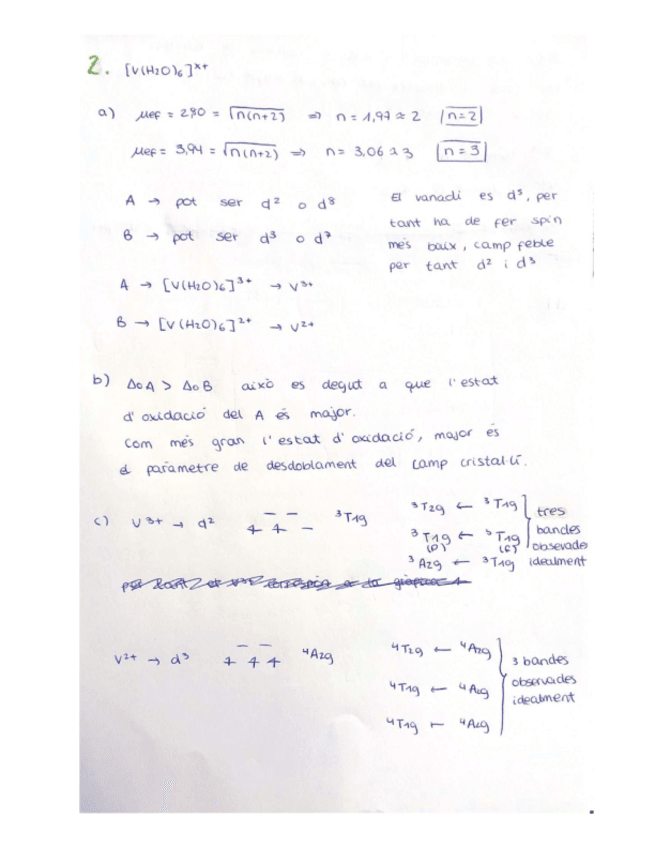 2. [V(H2O)6]x+
a) μef = 2,80 = √n(n+2) => n = 1,97 ≈ 2 n=2
μef = 3,94 = √n(n+2) => n = 3,06 ≈ 3 n=3
A → pot ser d2 o d8
B → pot ser d3 o d7
El vanadi es d5, per
tant ha de fer spin
més baix, camp feble
per tant d2 i d3
A → [V(H2O)6]3+ → V3+
B → [V(H2O)6]2+ → V2+
b) ΔoA > ΔoB això es degut a que l'estat
d'oxidació del A és major.
Com més gran l'estat d'oxidació, major és
el paràmetre de desdoblament del camp cristal·lí.
c) V3+ → d2 3T1g
3T2g ← 3T1g
3T1g (P) ← 3T1g (F)
3A2g ← 3T1g
tres
bandes
obsevades
idealment
V2+ → d3 4A2g
4T2g ← 4A2g
4T1g ← 4A2g
4T1g ← 4A2g
3 bandes
observades
idealment